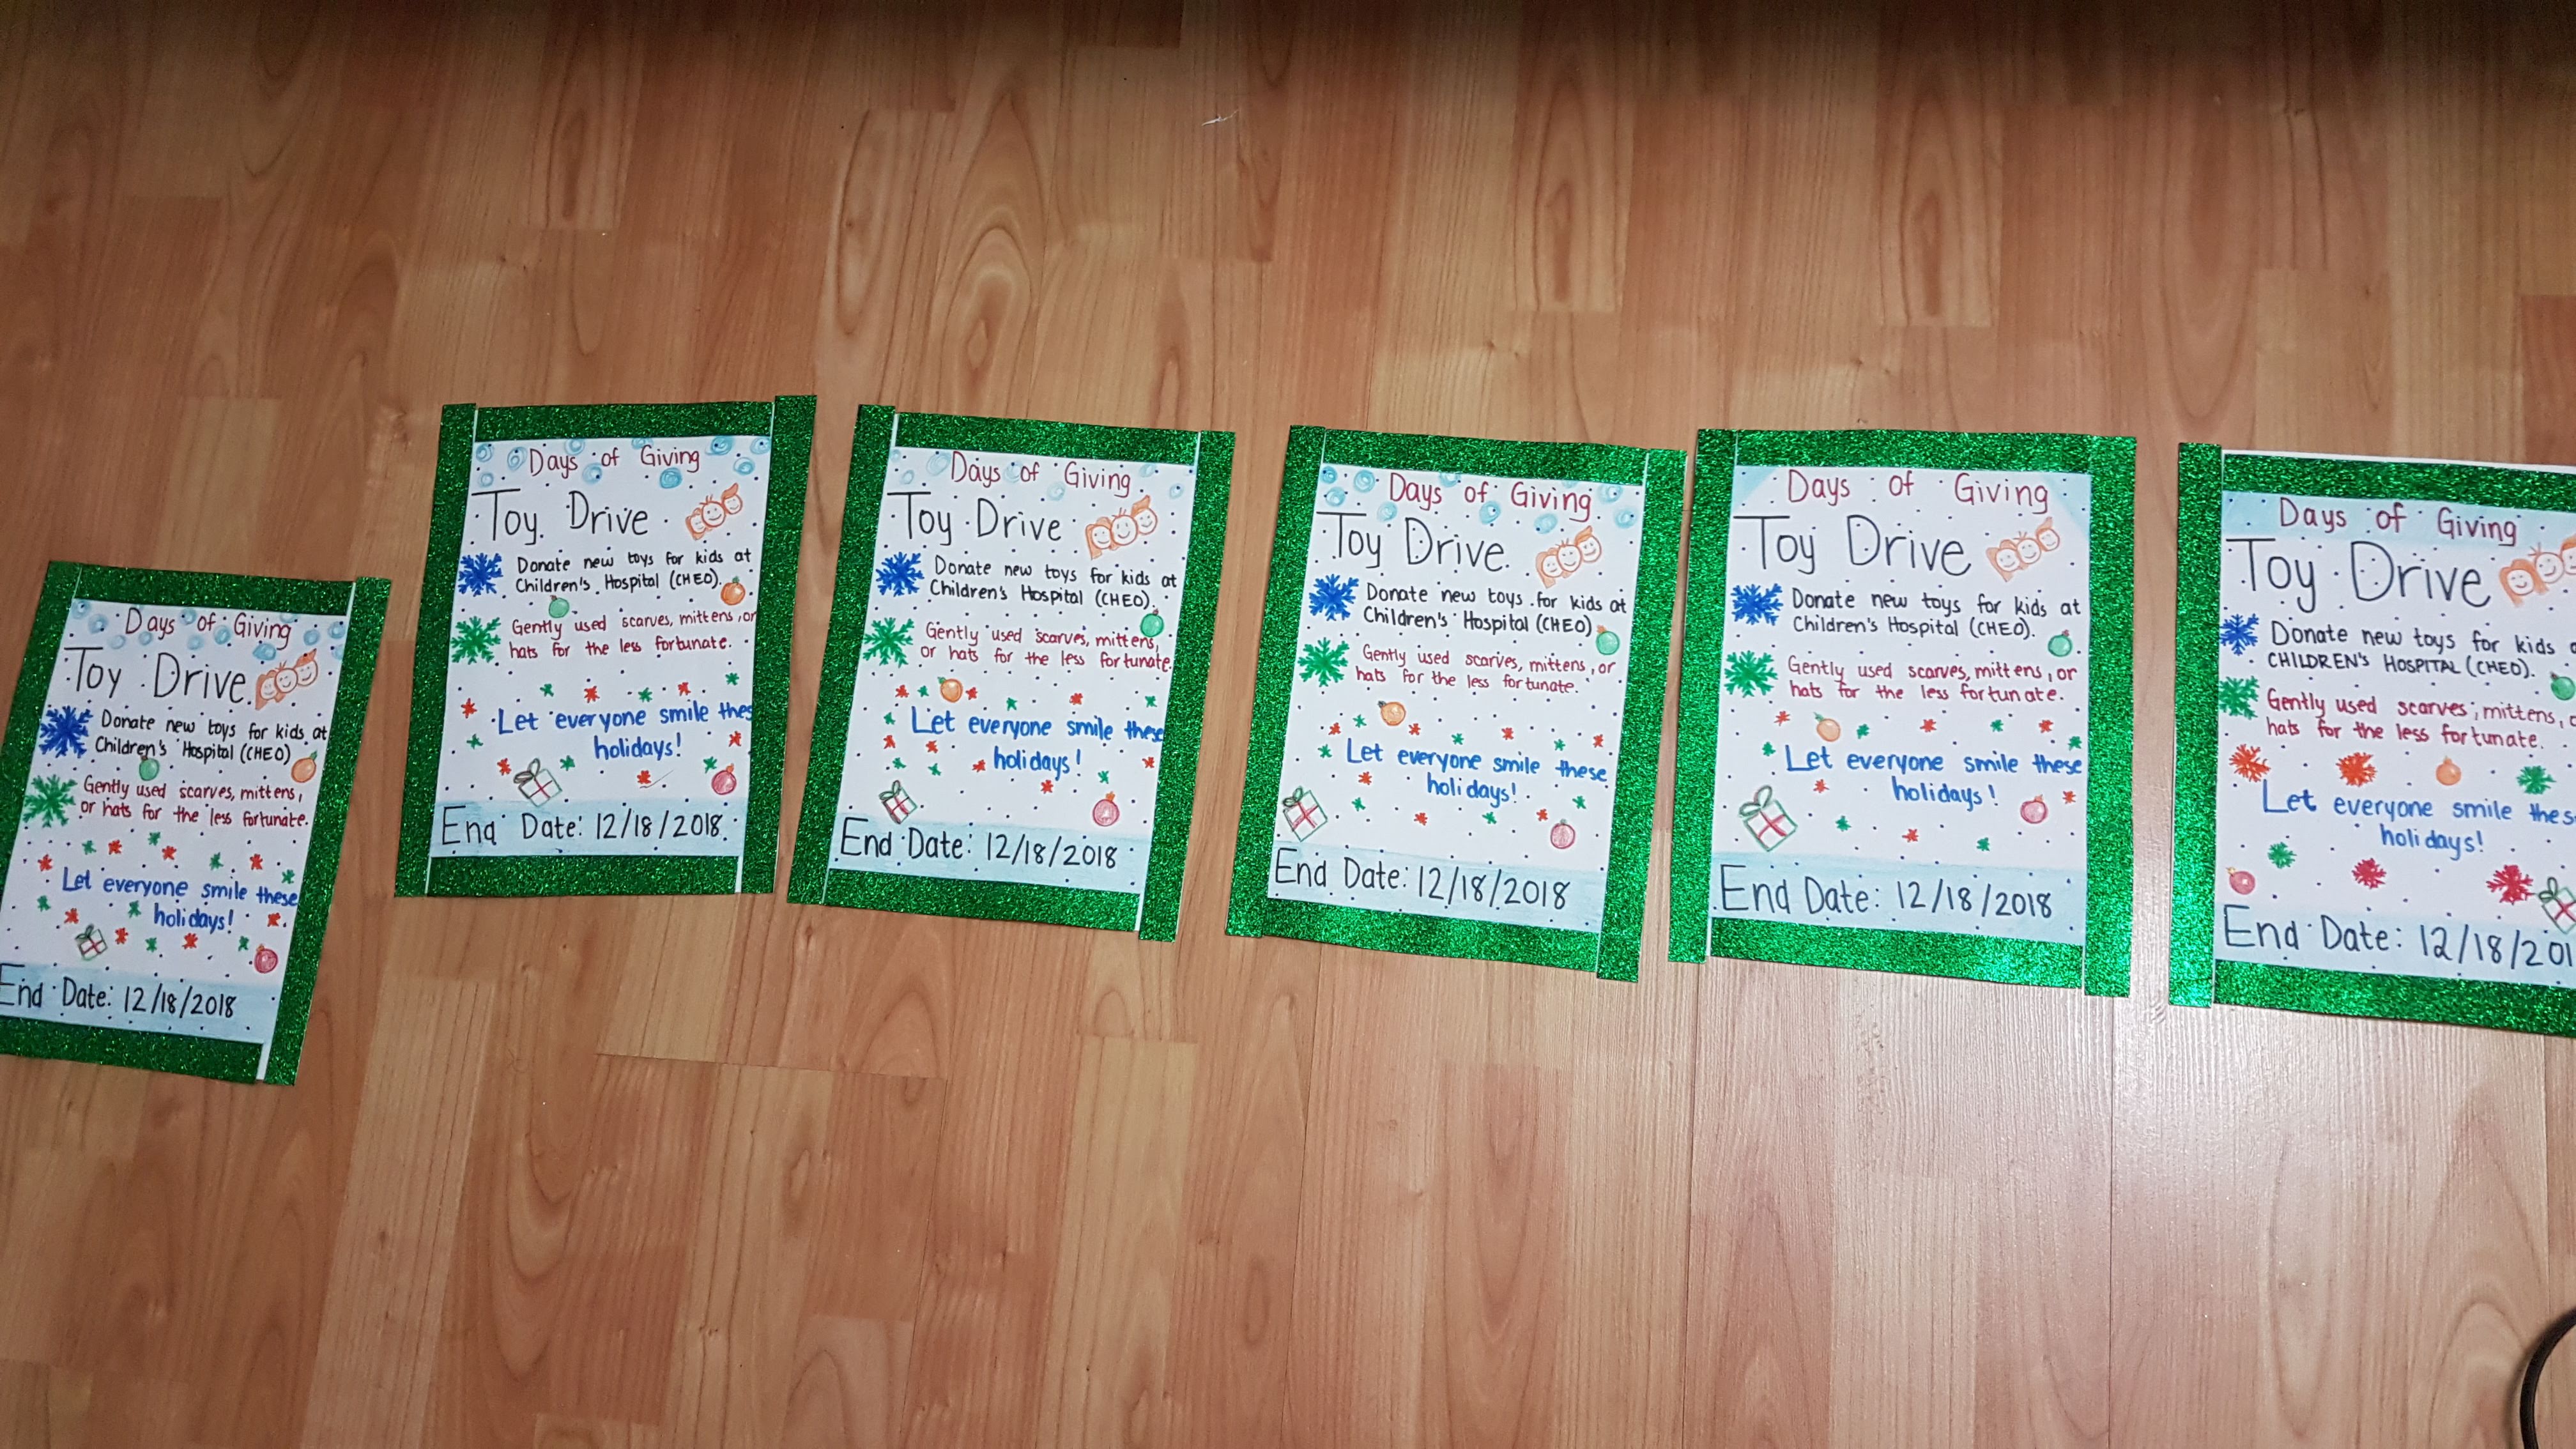 Days of Giving
Toy Drive
Donate new toys for kids at
Children's Hospital (CHEO)
Gently used scarves, mittens,
or hats for the less fortunate.
Let everyone smile these
holidays!
End Date: 12/18/2018
Days of Giving
Toy Drive
Donate new toys for kids at
Children's Hospital (CHEO).
Gently used scarves, mittens, or
hats for the less fortunate.
Let everyone smile thes
holidays!
End Date: 12/18/2018
Days of Giving
Toy Drive
Donate new toys for kids at
Children's Hospital (CHEO).
Gently used scarves, mittens,
or hats for the less fortunate.
Let everyone smile these
holidays!
End Date: 12/18/2018
Days of Giving
Toy Drive
Donate new toys for kids at
Children's Hospital (CHEO)
Gently used scarves, mittens, or
hats for the less fortunate.
Let everyone smile these
holidays!
End Date: 12/18/2018
Days of Giving
Toy Drive
Donate new toys for kids at
Children's Hospital (CHEO).
Gently used scarves, mittens, or
hats for the less fortunate.
Let everyone smile these
holidays!
End Date: 12/18/2018
Days of Giving
Toy Drive
Donate new toys for kids
CHILDREN'S HOSPITAL (CHEO).
Gently used scarves, mittens,
hats for the less fortunate.
Let everyone smile thes
holidays!
End Date: 12/18/201